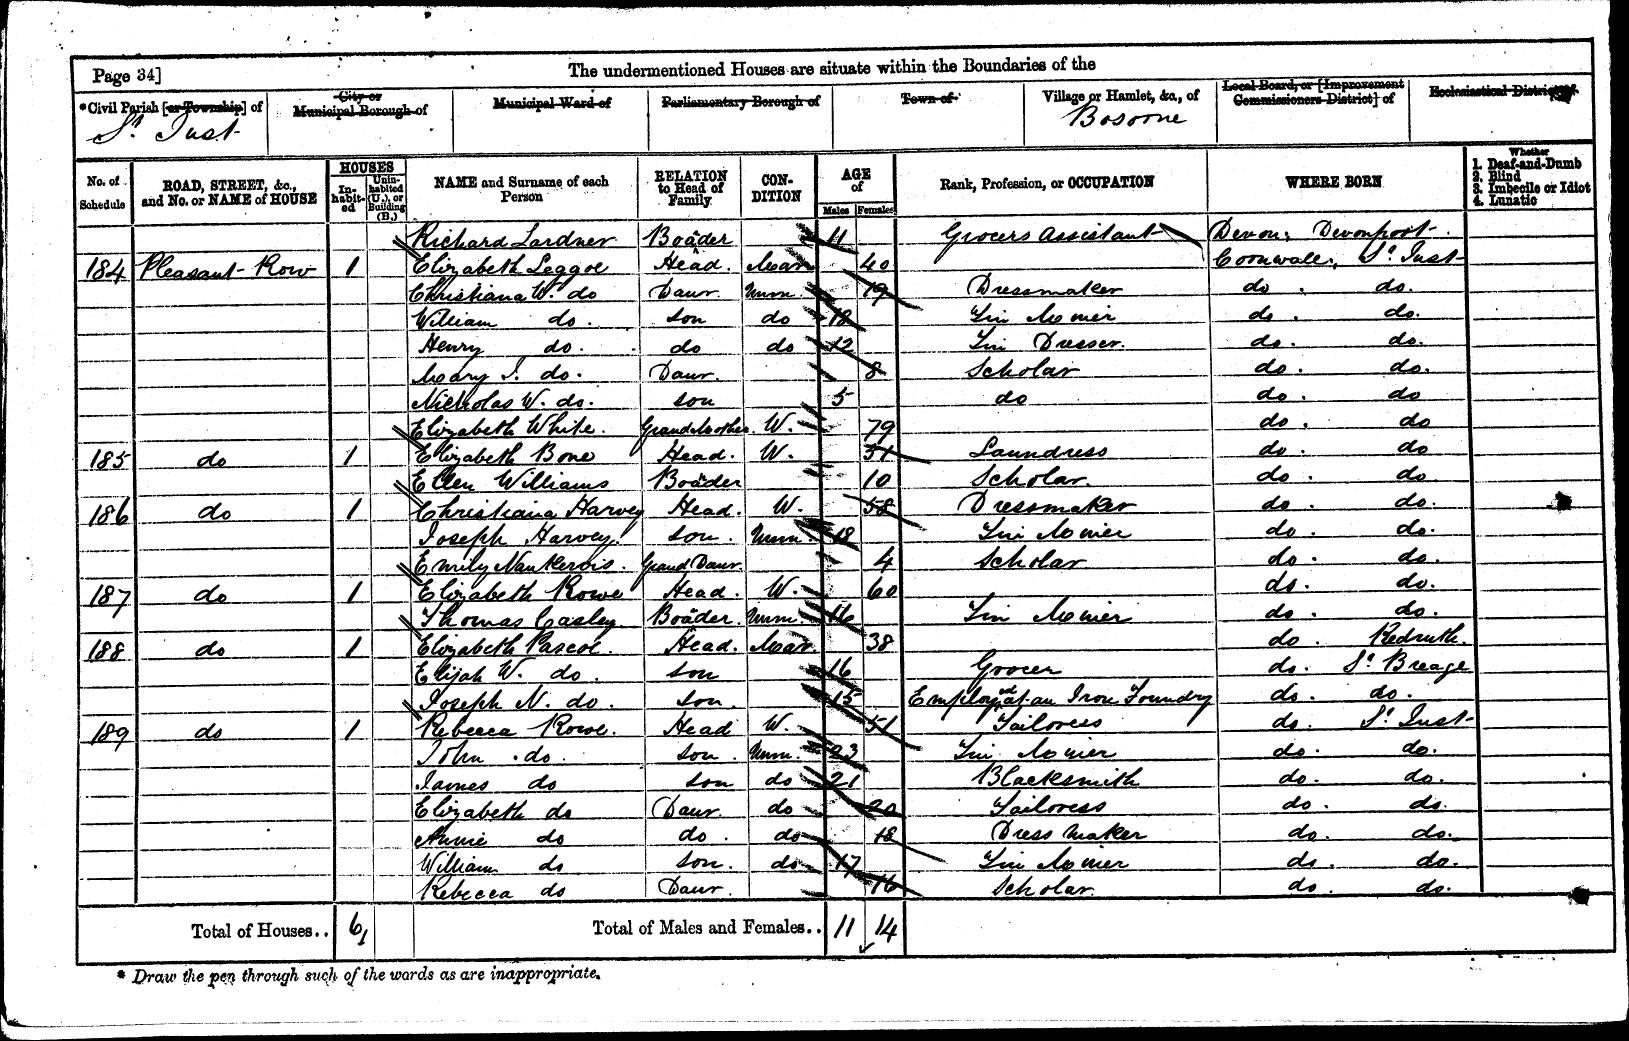 Page 34]
The undermentioned Houses are situate within the Boundaries of the
*Civil Parish [or Township] of City or Municipal Borough of Municipal Ward of Parliamentary Borough of Town of Village or Hamlet, &c., of Local Board, or [Improvement Commissioners District] of Ecclesiastical District of
St Just Bosorne
No. of Schedule ROAD, STREET, &c., and No. or NAME of HOUSE HOUSES Inhabited Uninhabited (U.), or Building (B.) NAME and Surname of each Person RELATION to Head of Family CONDITION AGE of Males Females Rank, Profession, or OCCUPATION WHERE BORN Whether 1. Deaf-and-Dumb 2. Blind 3. Imbecile or Idiot 4. Lunatic
Richard Lardner Boader 11 Grocers Assistant Devon; Devonport
184 Pleasant Row 1 Elizabeth Leggoe Head. Mar 40 Cornwall; St Just
Christiana W. do Daur. Unm. 19 Dressmaker do. do.
William do. son do 18 Tin Miner do. do.
Henry do. do do 12 Tin Dresser. do. do.
Mary J. do. Daur. 8 Scholar do. do.
Nicholas W. do. son 5 do do. do
Elizabeth White. GrandMother. W. 79 do. do
185 do 1 Elizabeth Bone Head. W. 51 Laundress do. do
Ellen Williams Boader 10 Scholar. do. do
186 do 1 Christiana Harvey Head. W. 58 Dressmaker do. do.
Joseph Harvey. son. Unm. 18 Tin Miner do. do.
Emily Nankervis. Grand Daur. 4 Scholar do. do.
187 do 1 Elizabeth Rowe Head. W. 60 do. do.
Thomas Casley. Boader. Unm. 16 Tin Miner do. do.
188 do 1 Elizabeth Pascoe. Head. Mar. 38 do. Redruth.
Elijah W. do. son 16 Grocer do. St Breage
Joseph N. do. son. 15 Employed at an Iron Foundry do. do.
189 do 1 Rebecca Rowe. Head W. 51 Tailoress do. St Just
John do. son. Unm. 23 Tin Miner do. do.
James do son do 21 Blacksmith do. do.
Elizabeth do Daur do 20 Tailoress do. do.
Annie do do. do 18 Dress Maker do. do.
William do son. do 17 Tin Miner do. do.
Rebecca do Daur. 16 Scholar. do. do.
Total of Houses.. 6 Total of Males and Females.. 11 14
* Draw the pen through such of the words as are inappropriate.